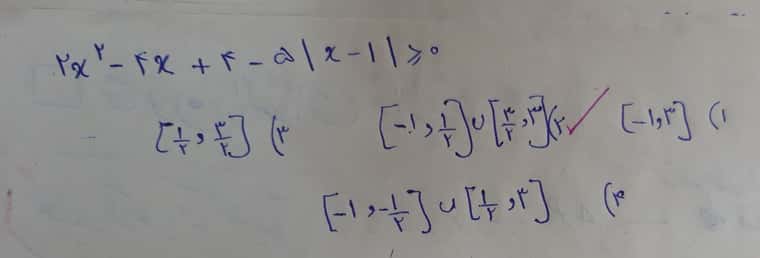 ۲x^۲ - ۴x + ۴ - ۵|x - 1| ⩾ ۰
۱) [-۱, ۳]    ۲) [-۱, ۱/۲] ∪ [۳/۲, ۳]    ۳) [۱/۲, ۳/۲]
۴) [-۱, -۱/۲] ∪ [۱/۲, ۳]